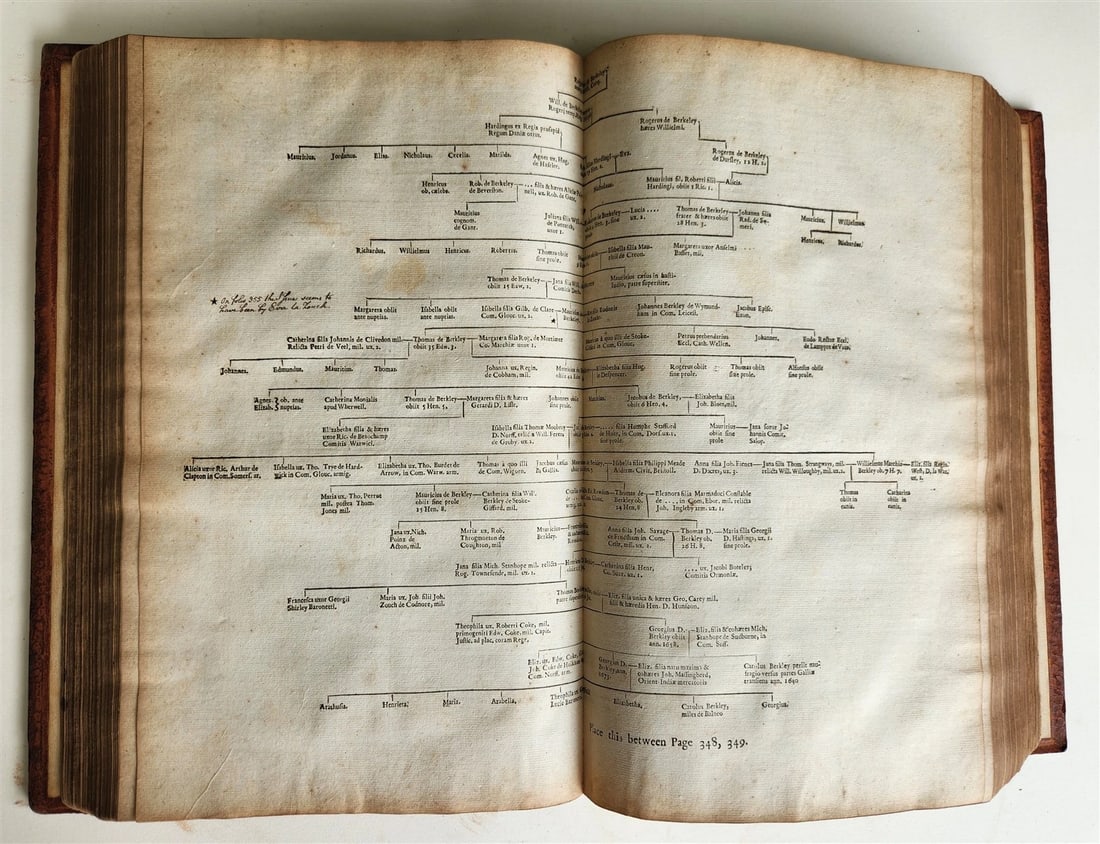 Will. de
Hardingus ex Regia prosapia
Regum Daniæ ortus.
Rogerus de Berkeley
hæres Willielmi.
Mauritius. Jordanus. Elias. Nicholaus. Cecelia. Matilda. Agnes ux. Hug.
de Haseley.
Rogerus de Berkeley
de Dursley, 11 H. 2.
Henricus
ob. cælebs.
Rob. de Berkeley
de Beverston.
.... filia & hæres
ux. Rob. de Gant.
Nicholaus.
Mauritius fil. Roberti filii
Hardingi, obiit 1 Ric. 1.
Alicia.
Mauritius
cognom.
de Gant.
Juliana filia
uxor 1.
Lucia ....
ux. 2.
Thomas de Berkeley
frater & hæres obiit
28 Hen. 3.
Johanna filia
Rad. de Someri.
Mauritius. Willielmus.
Henricus. Richardus.
Richardus. Willielmus. Henricus. Robertus. Thomas obiit
sine prole.
Isbella filia Mau-
ricii de Creon.
Margareta uxor Anselmi
Basset, mil.
Thomas de Berkeley
obiit 15 Edw. 1.
Jana filia
Comitis
Mauritius cæsus in hasti-
ludio, patre superstite.
★ On folio 355 the Issue seems to
have been by Eva la Zouch.
Margareta obiit
ante nuptias.
Isabella obiit
ante nuptias.
Isabella filia Gilb. de Clare
Com. Glouc. ux. 2.
★
Johannes Berkeley de Wymund-
ham in Com. Leicest.
Jacobus Episc.
Exon.
Catherina filia Johannis de Clivedon mil.
Relicta Petri de Veel, mil. ux. 2.
Thomas de Berkley
obiit 35 Edw. 3.
Margareta filia Rog. de Mortimer
Co. Marchiæ uxor 1.
à quo illi de Stoke-
in Com. Glouc.
Petrus prebendarius
Eccl. Cath. Wellen.
Johannes.
Eudo Rector Eccl.
Johannes. Edmundus. Mauritius. Thomas.
Johanna ux. Regin.
de Cobham, mil.
Elizabetha filia Hug.
le Despencer.
Rogerus obiit
sine prole.
Thomas obiit
sine prole.
Alfonsus obiit
sine prole.
Agnes
Elizab. } ob. ante
nuptias.
Catherina Monialis
apud Wherwell.
Thomas de Berkeley
obiit 5 Hen. 5.
Margareta filia & hæres
Gerardi D. Lisle.
Johannes
sine prole.
Jacobus de Berkeley
obiit 6 Hen. 4.
Elizabetha filia
Joh. Bloet, mil.
Elizabetha filia & hæres
uxor Ric. de Beauchamp
Comitis Warwici.
Isabella filia Thomæ Mowbray
D. Norff. relicta Will. Ferrers
de Groby. ux. 2.
.... filia Humphr. Stafford
de Hoke, in Com. Dorf. ux. 1.
sine
prole
Mauritius
sine prole.
Jana soror Jo-
hannis Comit.
Salop.
Alicia uxor Ric. Arthur de
Clapton in Com. Somerf. ar.
Isabella ux. Tho. Trye de Hard-
wick in Com. Glouc. armig.
Elizabetha ux. Tho. Burdet de
Arrow, in Com. Warw. arm.
Thomas à quo illi
de Com. Wigorn.
Jacobus cæsus
in Gallia.
Isabella filia Philippi Meade
Aldrem. Civit. Bristoll.
Anna filia Joh. Fienes
D. Dacres, ux. 3.
Jana filia Thom. Strangways, mil.
relicta Will. Willoughby, mil. ux. 2.
Willielmus Marchio
Berkeley ob. 7 H. 7.
Eliz. filia Regin.
West, D. la War,
ux. 1.
Thomas
obiit in
cunis.
Catharina
obiit in
cunis.
Maria ux. Tho. Perrot
mil. postea Thom.
Jones mil.
Mauricius de Berkeley
obiit sine prole
15 Hen. 8.
Catherina filia Will.
Berkeley de Stoke-
Giffard, mil.
Thomas de
Berkeley ob.
24 Hen. 8
Eleanora filia Marmaduci Constable
de ...., in Com. Ebor. mil. relicta
Joh. Ingleby arm. ux. 1.
Jana ux. Nich.
Poinz de
Acton, mil.
Maria ux. Rob.
Throgmorton de
Coughton, mil
Mauricius
Berkeley.
Anna filia Joh. Savage
de Frodsham in Com.
Cestr. mil. ux. 2.
Thomas D.
Berkeley ob.
26 H. 8,
Maria filia Georgii
D. Hastings, ux. 1.
sine prole.
Jana filia Mich. Stanhope mil. relicta
Rog. Townesende, mil. ux. 2.
Catherina filia Henr.
Co. Surr. ux. 1.
.... ux. Jacobi Boteler,
Comitis Ormoniæ.
Francesca uxor Georgii
Shirley Baronetti.
Maria ux. Joh filii Joh.
Zouch de Codnore, mil.
Thomas
Eliz. filia unica & hæres Geo, Carey mil.
filii & hæredis Hen. D. Hunsdon.
Theophila ux. Roberti Coke, mil.
primogeniti Edw. Coke, mil. Capit.
Justic. ad plac. coram Rege.
Georgius D.
Berkeley obiit
ann. 1658.
Eliz. filia & cohæres Mich.
Stanhope de Sudborne, in
Com. Suff.
Eliz. ux. Edw. Coke,
Joh. Coke de Holkham
Com. Norff. arm.
Georgius D.
Berkeley, ann.
1673.
Eliz. filia natu maxima &
cohæres Joh. Massingberd,
Orient-Indiæ mercatoris
Carolus Berkley periit nau-
fragio versus partes Galliæ
transiens ann. 1640
Arathusia. Henrieta. Maria. Arabella. Theophila
Elizabetha. Carolus Berkley,
miles de Balneo
Georgius.
Place this between Page 348, 349.